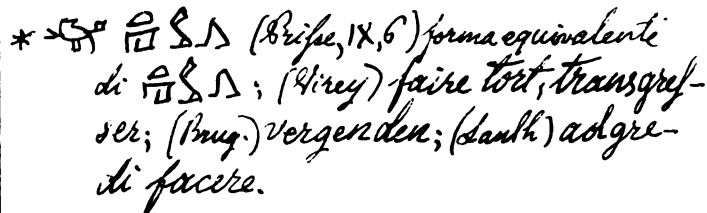 * (Prisse, IX, 6) forma equivalente
di ; (Virey) faire tort, transgres-
ser; (Brug.) vergenden; (Lauth) adgre-
di facere.